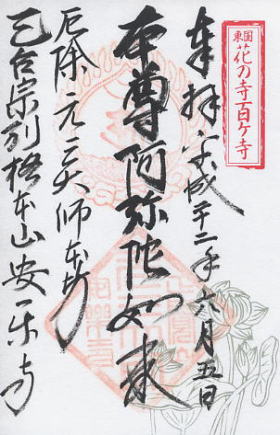 東国花の寺百ヶ寺
奉拝 平成二十二年六月五日
本尊阿弥陀如来
厄除元三大師本坊
天台宗別格本山安楽寺